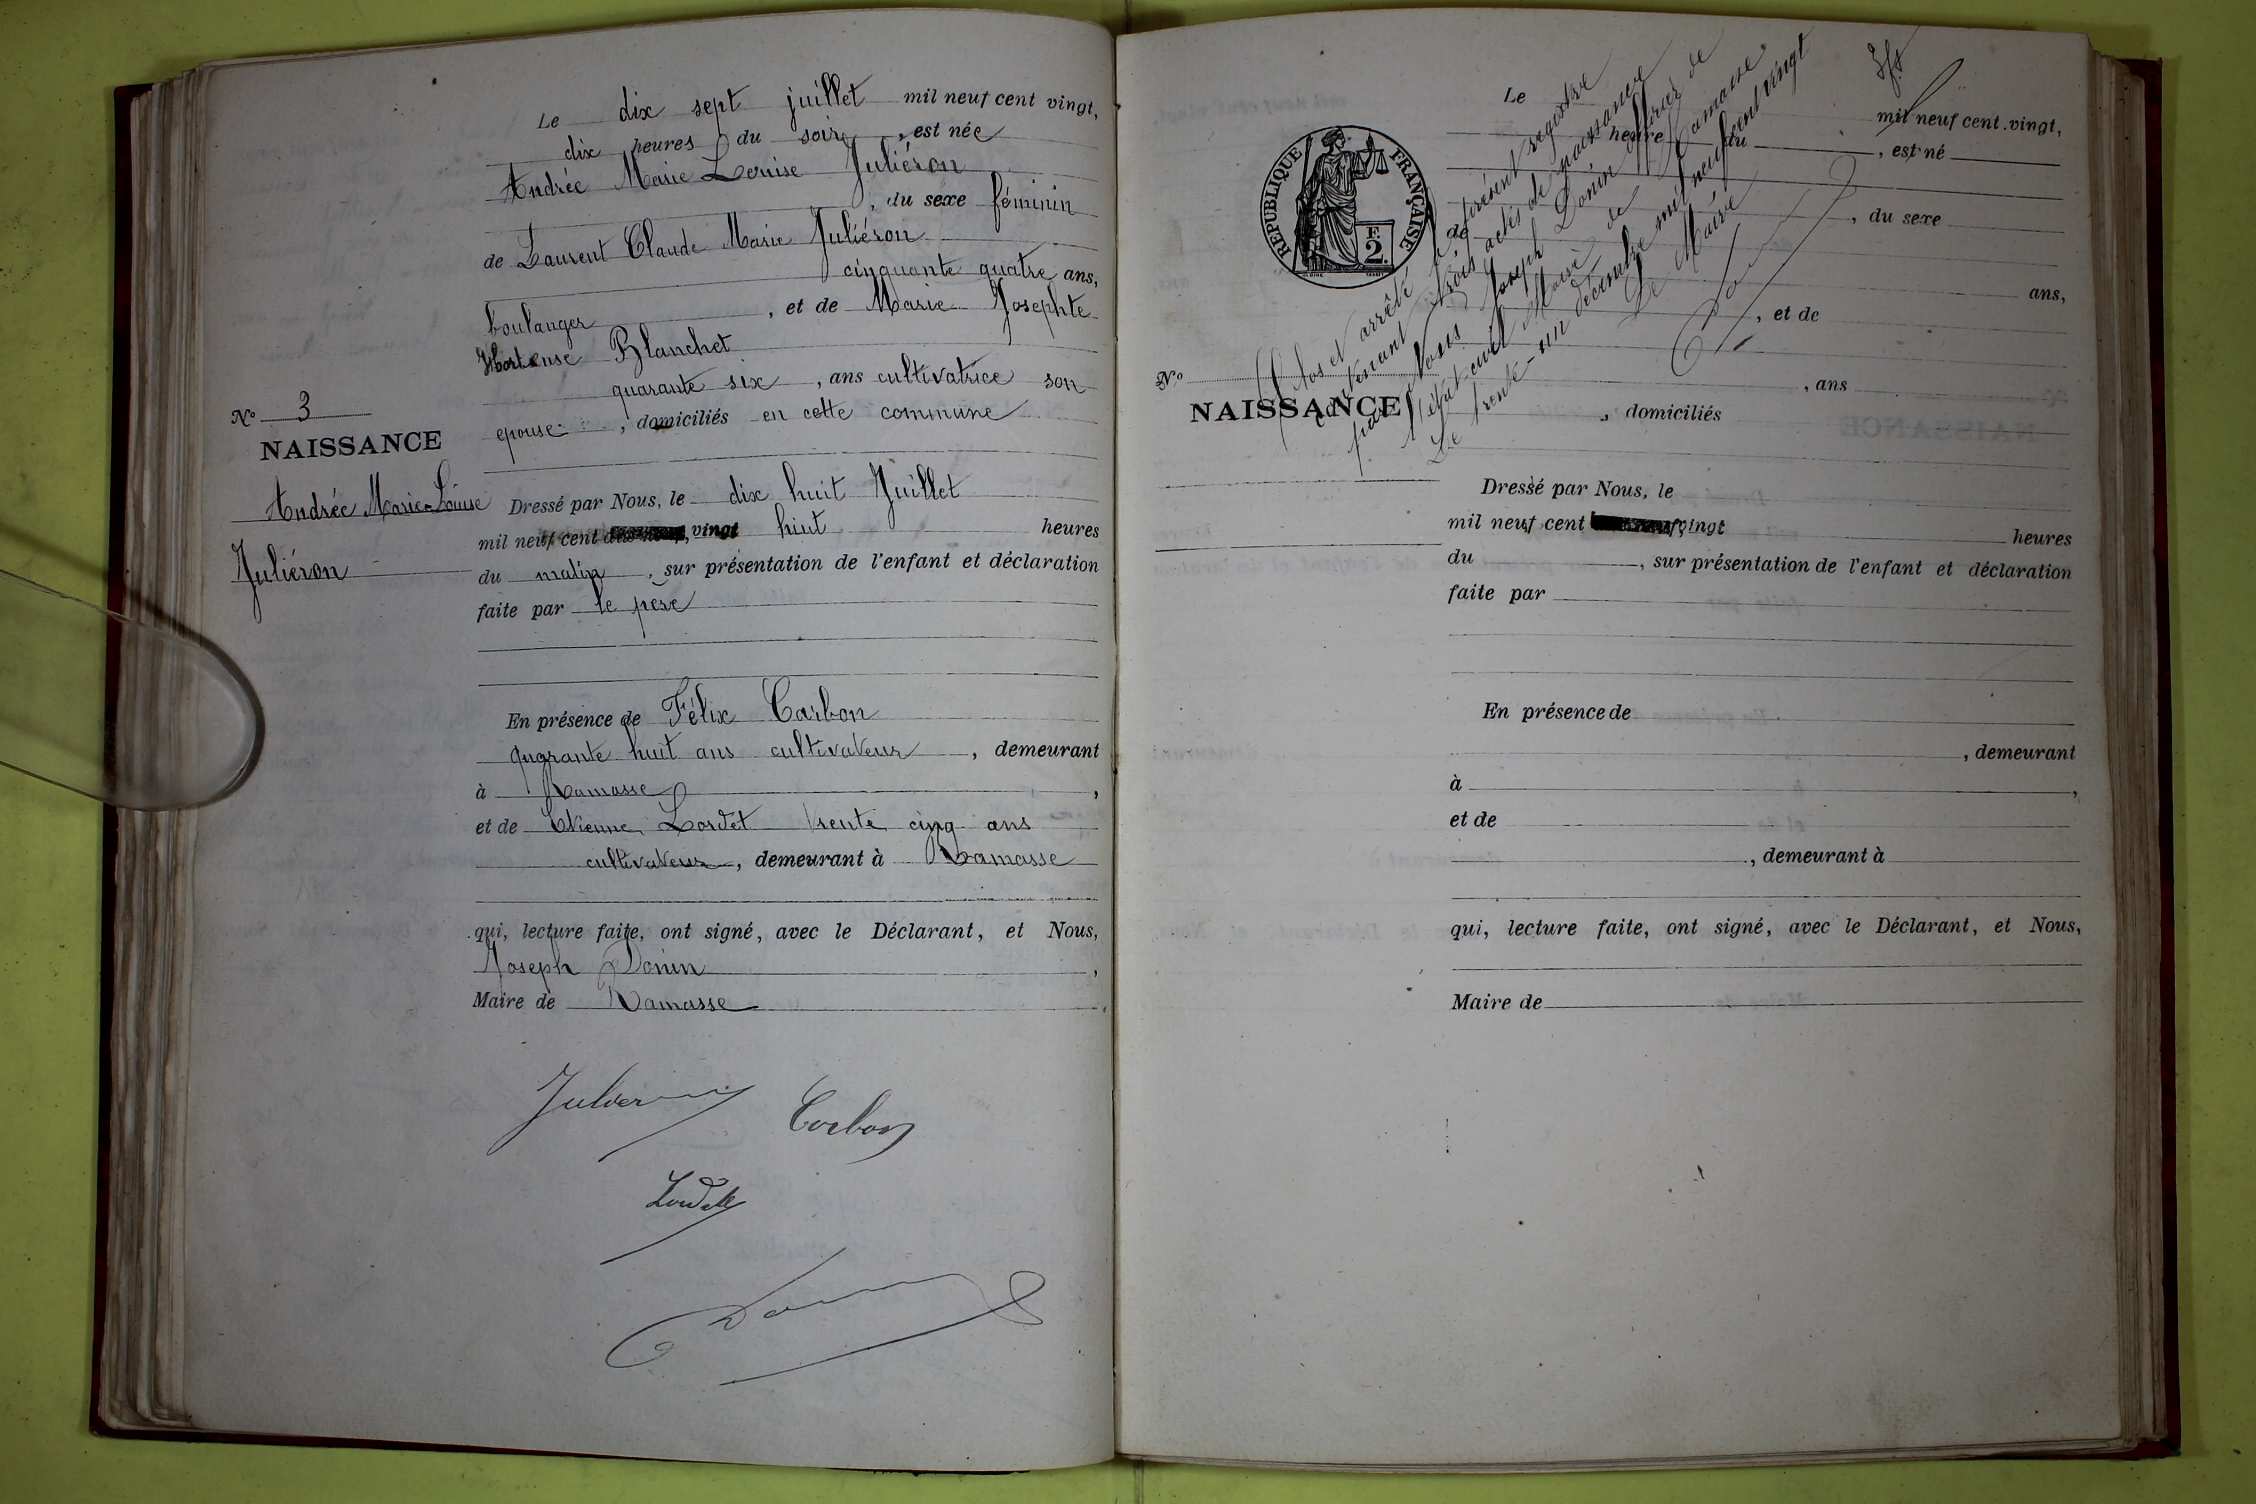 Le dix sept juillet mil neuf cent vingt,
dix heures du soir, est née
Andrée Marie Louise Juliéron
, du sexe féminin
de Laurent Claude Marie Juliéron
cinquante quatre ans,
boulanger, et de Marie Josephte
Hortense Blanchet
quarante six, ans cultivatrice son
epouse, domiciliés en cette commune
No 3
NAISSANCE
Andrée Marie-Louise
Juliéron
Dressé par Nous, le dix huit Juillet
mil neuf cent vingt huit heures
du matin, sur présentation de l'enfant et déclaration
faite par le père
En présence de Félix Carbon
quarante huit ans cultivateur, demeurant
à Ramasse,
et de Etienne Lordet trente cinq ans
cultivateur, demeurant à Ramasse
qui, lecture faite, ont signé, avec le Déclarant, et Nous,
Joseph Donin,
Maire de Ramasse
Corbon
RÉPUBLIQUE FRANÇAISE
F.
2.
Clos et arrêté le présent registre
contenant trois actes de naissance
par Nous Joseph Donin officier de
l'état-civil Maire de Ramasse
Le trente-un décembre mil neuf cent vingt
Le Maire
Le mil neuf cent vingt,
heure du, est né
, du sexe
de
ans,
, et de
, ans
, domiciliés
No
NAISSANCE
Dressé par Nous, le
mil neuf cent vingt heures
du, sur présentation de l'enfant et déclaration
faite par
En présence de
, demeurant
à,
et de
, demeurant à
qui, lecture faite, ont signé, avec le Déclarant, et Nous,
Maire de